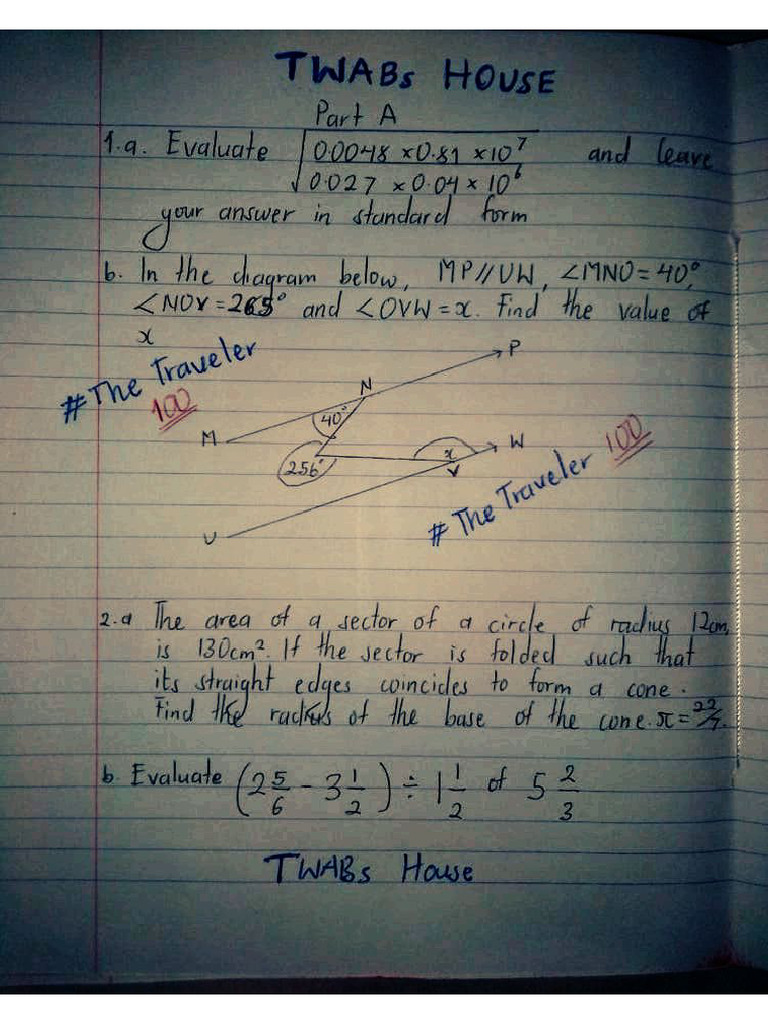 TWABs HOUSE
Part A
1.a. Evaluate √(0.0048 × 0.81 × 10⁷ and leave
0.027 × 0.04 × 10⁶)
your answer in standard form
b. In the diagram below, MP//UW, ∠MNO = 40°,
∠NOV = 265° and ∠OVW = x. Find the value of
x
#The Traveler
100
P
N
40°
M
W
x
256°
V
#The Traveler 100
U
2.a The area of a sector of a circle of radius 12cm,
is 130cm². If the sector is folded such that
its straight edges coincides to form a cone.
Find the radius of the base of the cone. π = 22/7.
b. Evaluate (2 5/6 - 3 1/2) ÷ 1 1/2 of 5 2/3
TWABs House